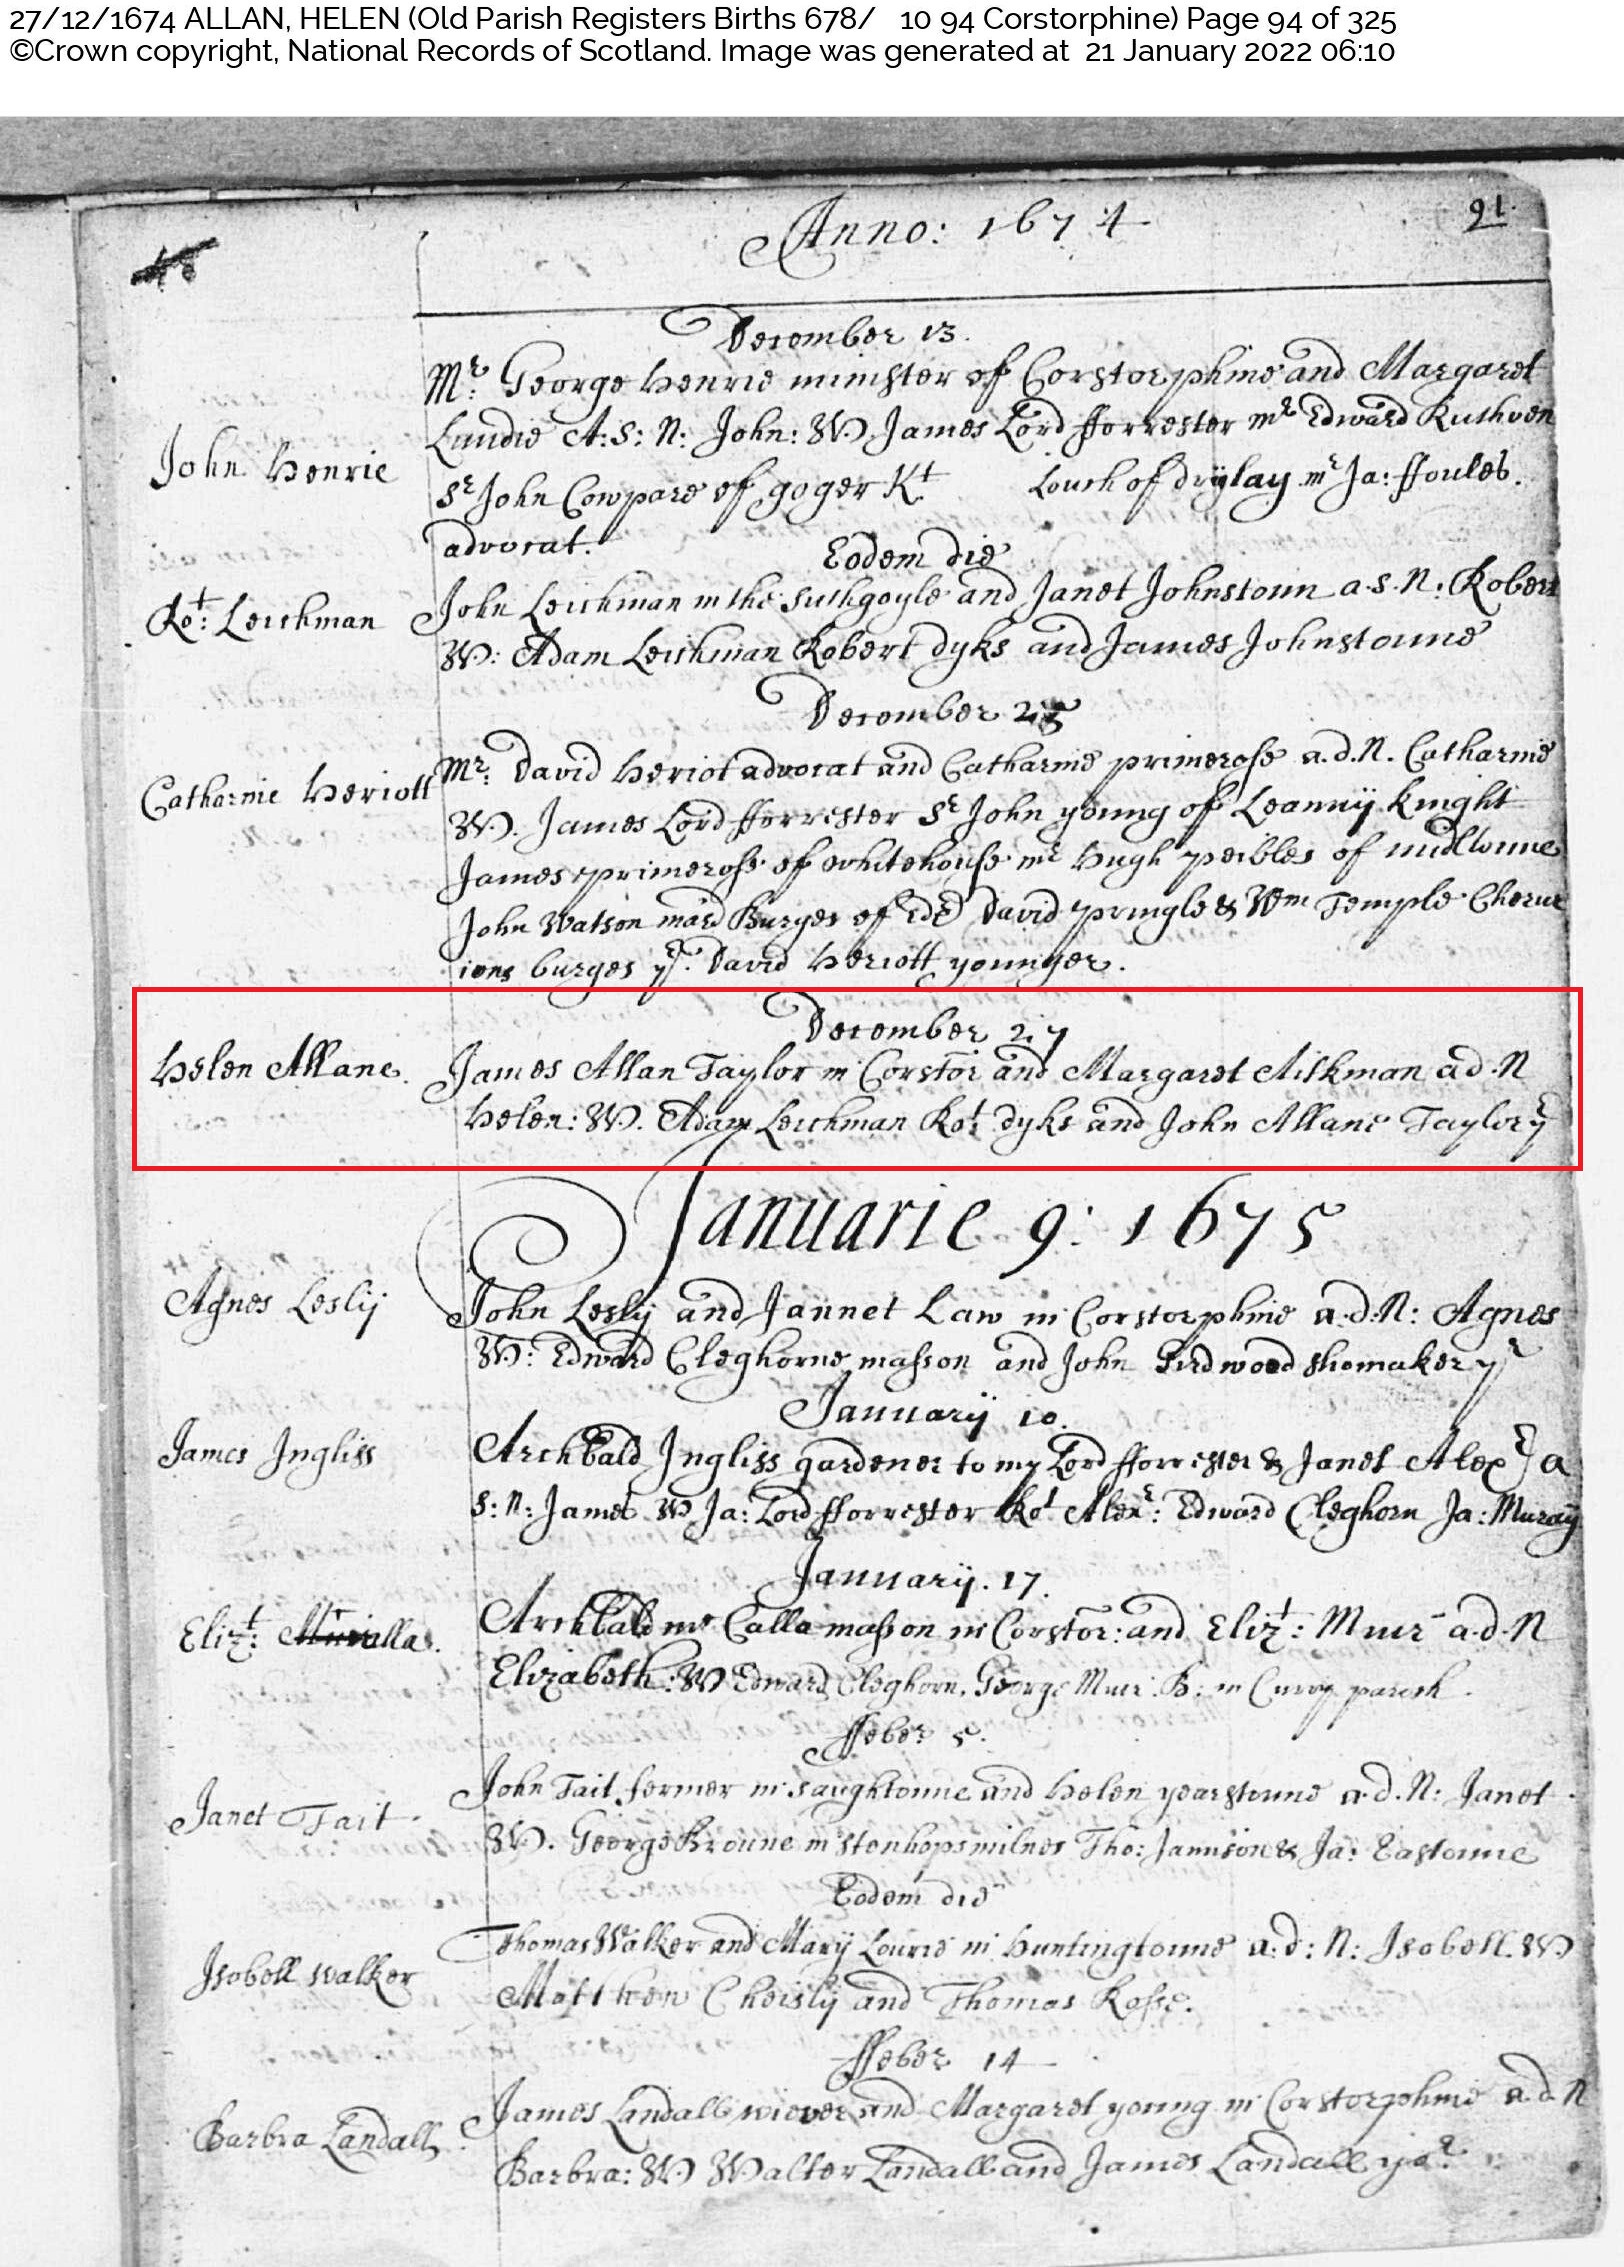 27/12/1674 ALLAN, HELEN (Old Parish Registers Births 678/ 10 94 Corstorphine) Page 94 of 325
©Crown copyright, National Records of Scotland. Image was generated at 21 January 2022 06:10
91.
Anno: 1674
December 13.
Mr: George Henrie minister of Corstorphine and Margaret
Lundie A: S: N: John: W. James Lord fforrester mr Edward Ruthven
John Henrie
Sr John Cowpare of goger Kt Louch of drylay mr Ja: ffoules.
advocat.
Eodem die
Rot: Leichman John Leichman in the Suthgoyle and Janet Johnstoun a.s.N: Robert
W: Adam Leichman Robert dyks and James Johnstoune
December 25
Catharine Heriott Mr: David Heriot advocat and Catharine primerose a.d.N. Catharine
W. James Lord fforrester Sr John young of Leanny Knight
James primerose of whitehouse mr Hugh peibles of midltoune
John Watson Burges of Edr David pringle & Wm Temple Chirur
ions burges yr. David Heriott younger.
December 27
Helen Allane. James Allan Taylor in Corstor: and Margaret Aikman a d. N
Helen: W. Adam Leichman Rot: dyks and John Allane Taylor yr
Januarie 9: 1675
Agnes Lesly John Lesly and Jannet Law in Corstorphine a.d.N: Agnes
W: Edward Cleghorne masson and John Girdwood shomaker yr
January 10.
James Ingliss Archbald Ingliss gardener to my Lord fforrester & Janet Alexr a
s: N: James W Ja: Lord fforrester Rot Alexr: Edward Cleghorn Ja: Muray
January. 17.
Elizt: Archbald mc Calla masson in Corstor: and Elizt: Muir a.d.N
Elizabeth: W Edward Cleghorn. George Muir B: in Curry parish.
ffebr 5.
Janet Tait. John Tait fermer in Saughtoune and Helen yearstoune a.d.N: Janet.
W. George Broune in Stenhopsmilnes Tho: Jamison & Ja: Eastoune
Eodem die
Isobell Walker Thomas Walker and Mary Lourie in Huntingtoune a:d:N: Isobell. W
Matthew Cheisly and Thomas Rosse.
ffebr 14
Barbra Landall James Landall wiever and Margaret young in Corstorphine a.d.N
Barbra: W Walter Landall and James Landall yor